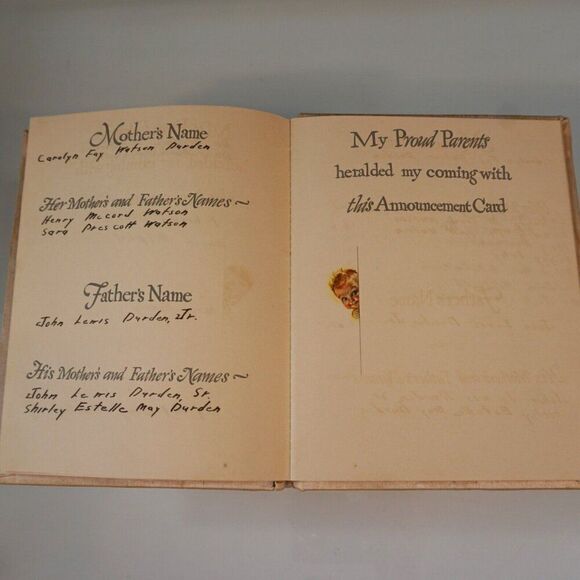 Mother's Name
Carolyn Fay Watson Durden
Her Mother's and Father's Names ~
Henry McCord Watson
Sara Prescott Watson
Father's Name
John Lewis Durden, Jr.
His Mother's and Father's Names ~
John Lewis Durden, Sr.
Shirley Estelle May Durden
My Proud Parents
heralded my coming with
this Announcement Card